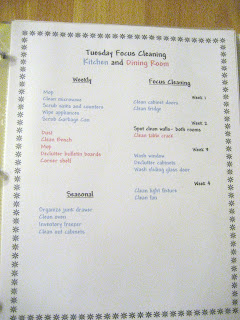 Tuesday Focus Cleaning
Kitchen and Dining Room
Weekly
Mop
Clean microwave
Scrub sinks and counters
Wipe appliances
Scrub Garbage Can
Dust
Clean Bench
Mop
Declutter bulletin boards
Corner shelf
Seasonal
Organize junk drawer
Clean oven
Inventory freezer
Clean out cabinets
Focus Cleaning
Week 1
Clean cabinet doors
Clean fridge
Week 2
Spot clean walls - both rooms
Clean table crack
Week 3
Wash window
Declutter cabinets
Wash sliding glass door
Week 4
Clean light fixture
Clean fan